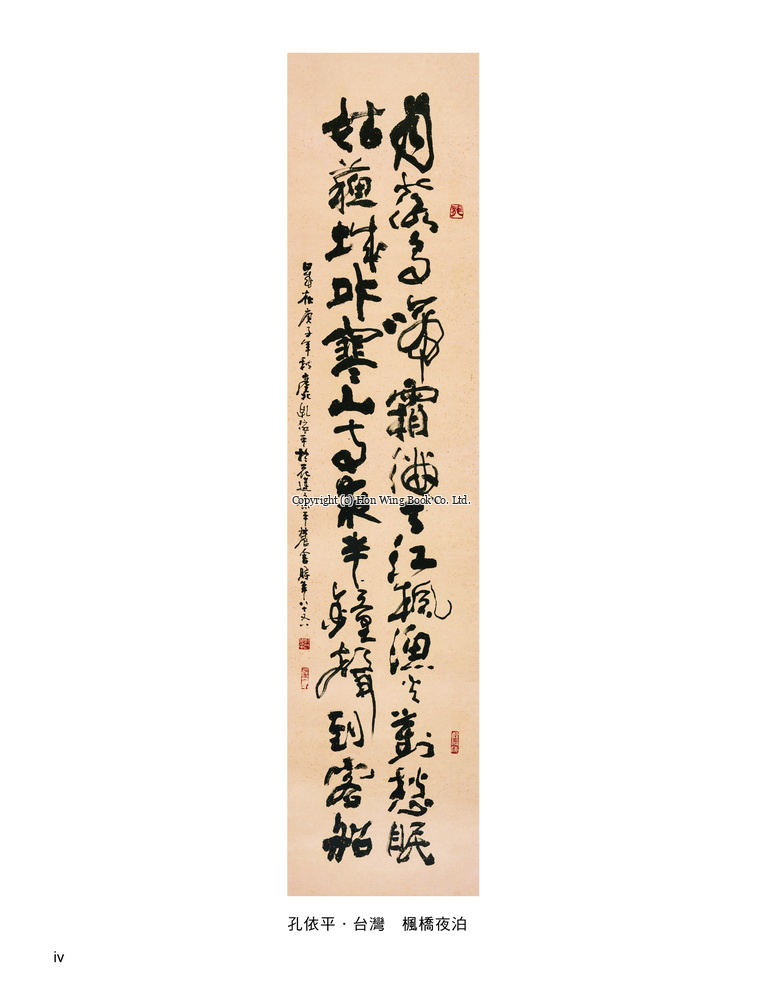 月落烏啼霜滿天江楓漁火對愁眠
姑蘇城外寒山寺夜半鐘聲到客船
庚子年秋 孔依平於花蓮 時年八十又八
Copyright (c) Hon Wing Book Co. Ltd.
孔依平．台灣　楓橋夜泊
iv